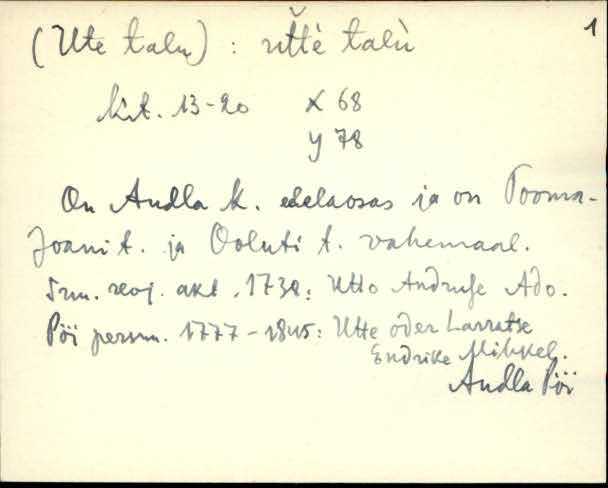 1
(Ute talu) : ut̆t̀è talù
lit. 13-20 X 68
Y 78
On Andla k. edelaosas ja on Tooma-
Joani t. ja Ooluti t. vahemaal.
Srm. revj. akt. 1738: Utto Andruse Ado.
Pöi persm. 1777-1845: Utte oder Larratse
Endrike Mihkel.
Andla Pöi